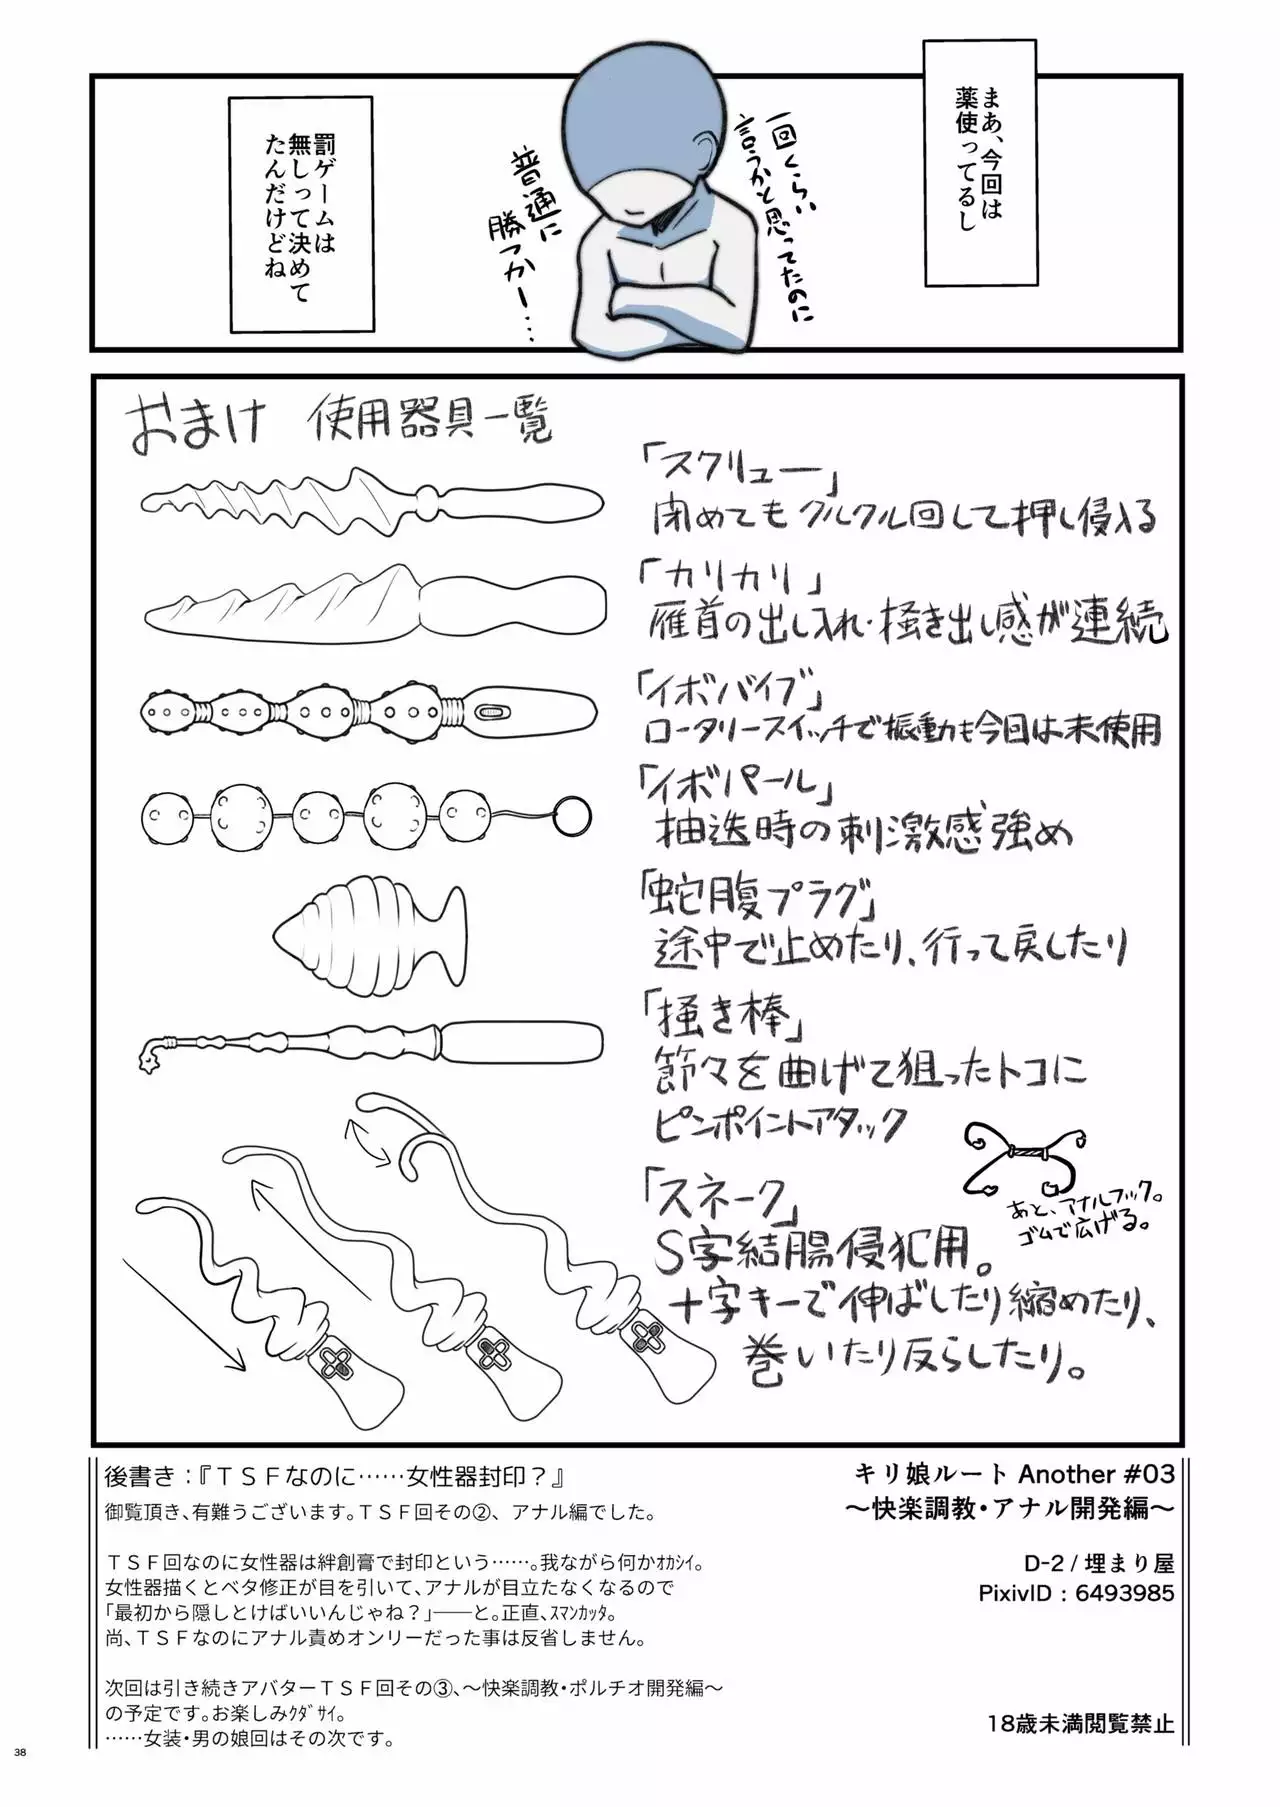 まあ、今回は
薬使ってるし
一回くらい
言うかと思ってたのに
普通に
勝つかー‥‥
罰ゲームは
無しって決めて
たんだけどね
おまけ 使用器具一覧
「スクリュー」
閉めてもクルクル回して押し侵入る
「カリカリ」
雁首の出し入れ・掻き出し感が連続
「イボバイブ」
ロータリースイッチで振動も今回は未使用
「イボパール」
抽迭時の刺激感強め
「蛇腹プラグ」
途中で止めたり、行って戻したり
「掻き棒」
節々を曲げて狙ったトコに
ピンポイントアタック
あと、アナルフック。
ゴムで広げる。
「スネーク」
S字結腸侵犯用。
十字キーで伸ばしたり縮めたり、
巻いたり反らしたり。
後書き：『ＴＳＦなのに……女性器封印？』
御覧頂き、有難うございます。ＴＳＦ回その②、アナル編でした。
ＴＳＦ回なのに女性器は絆創膏で封印という……。我ながら何かｵｶｼｲ。
女性器描くとベタ修正が目を引いて、アナルが目立たなくなるので
「最初から隠しとけばいいんじゃね？」──と。正直、ｽﾏﾝｶｯﾀ。
尚、ＴＳＦなのにアナル責めオンリーだった事は反省しません。
次回は引き続きアバターＴＳＦ回その③、～快楽調教・ポルチオ開発編～
の予定です。お楽しみｸﾀﾞｻｲ。
……女装・男の娘回はその次です。
キリ娘ルート Another #03
～快楽調教・アナル開発編～
D-2 / 埋まり屋
PixivID : 6493985
18歳未満閲覧禁止
38